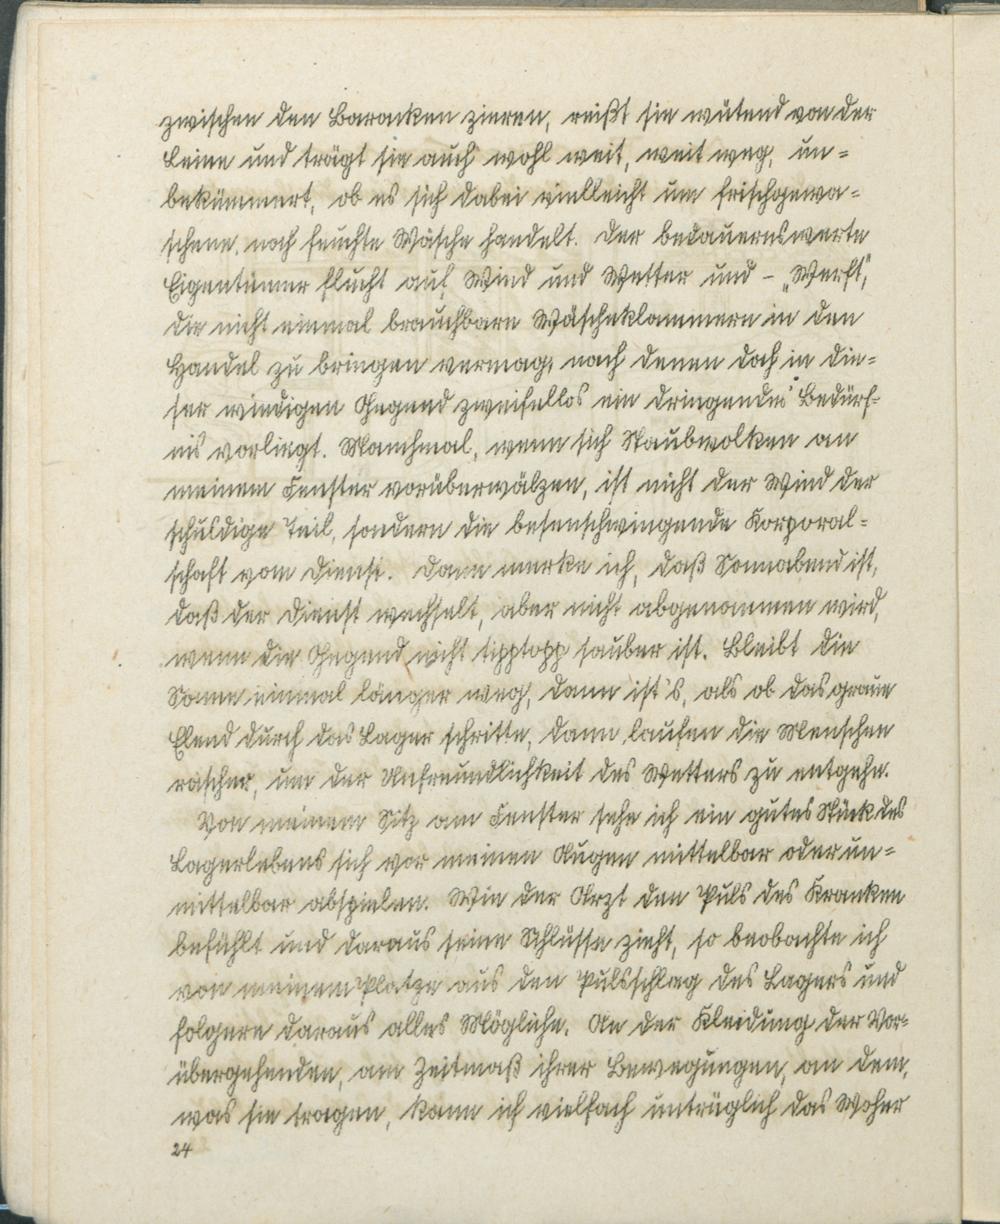 zwischen den Baracken zieren, reißt sie wütend von der
Leine und trägt sie auch wohl weit, weit weg, un=
bekümmert, ob es sich dabei vielleicht um frischgewa=
schene, noch feuchte Wäsche handelt. Der bedauernswerte
Eigentümer flucht auf Wind und Wetter und – „Werft“,
die nicht einmal brauchbare Wäscheklammern in den
Handel zu bringen vermag, nach denen doch in die=
ser windigen Gegend zweifellos ein dringendes Bedürf=
nis vorliegt. Manchmal, wenn sich Staubwolken an
meinem Fenster vorüberwälzen, ist nicht der Wind der
schuldige Teil, sondern die besenschwingende Korporal=
schaft vom Dienst. Dann merke ich, daß Sonnabend ist,
daß der Dienst wechselt, aber nicht abgenommen wird,
wenn die Gegend nicht tipptopp sauber ist. Bleibt die
Sonne einmal länger weg, dann ist's, als ob das graue
Elend durch das Lager schritte, dann laufen die Menschen
rascher, um der Unfreundlichkeit des Wetters zu entgehn.
Von meinem Sitz am Fenster sehe ich ein gutes Stück des
Lagerlebens sich vor meinen Augen mittelbar oder un=
mittelbar abspielen. Wie der Arzt den Puls des Kranken
befühlt und daraus seine Schlüsse zieht, so beobachte ich
von meinem Platze aus den Pulsschlag des Lagers und
folgere daraus alles Mögliche. An der Kleidung der Vor=
übergehenden, am Zeitmaß ihrer Bewegungen, an dem,
was sie tragen, kann ich vielfach untrüglich das Woher
24